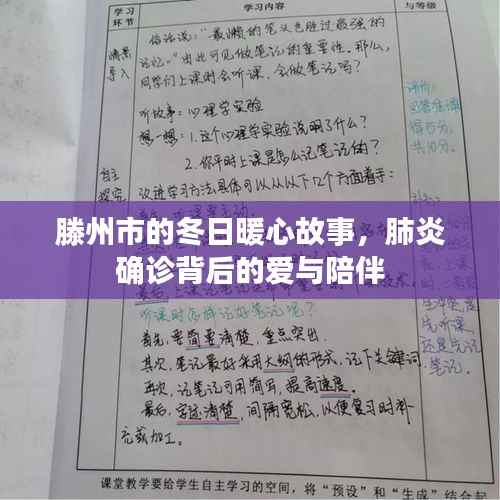 学习
环节
学习内容
与等级
情景
导入
俗话说："最懒的笔头也胜过最强的
记忆。"由此可见做笔记的重要性。那么,
同学们上课时会听课,会做笔记吗?
听故事:心理学实验
想一想:1.这个心理学实验说明了什么?
2.你平时上课是怎么记笔记的?
自主
探究
改进学习方法具体可以从以下几个方面着手:
滕州市的冬日暖心故事，肺炎
确诊背后的爱与陪伴
听课时怎样记好笔记呢?
首先,要简要清楚,重点突出.
其次,笔记最好采用大纲的形式,记下关键词
再次,记笔记可用简写,提高速度。
最后,字迹清楚,间隔宽松,以便复习时补
充或加工。
先听课
还是先记
笔记
课堂教学要给学生自主学习的空间，将"预设"和"生成"结合起